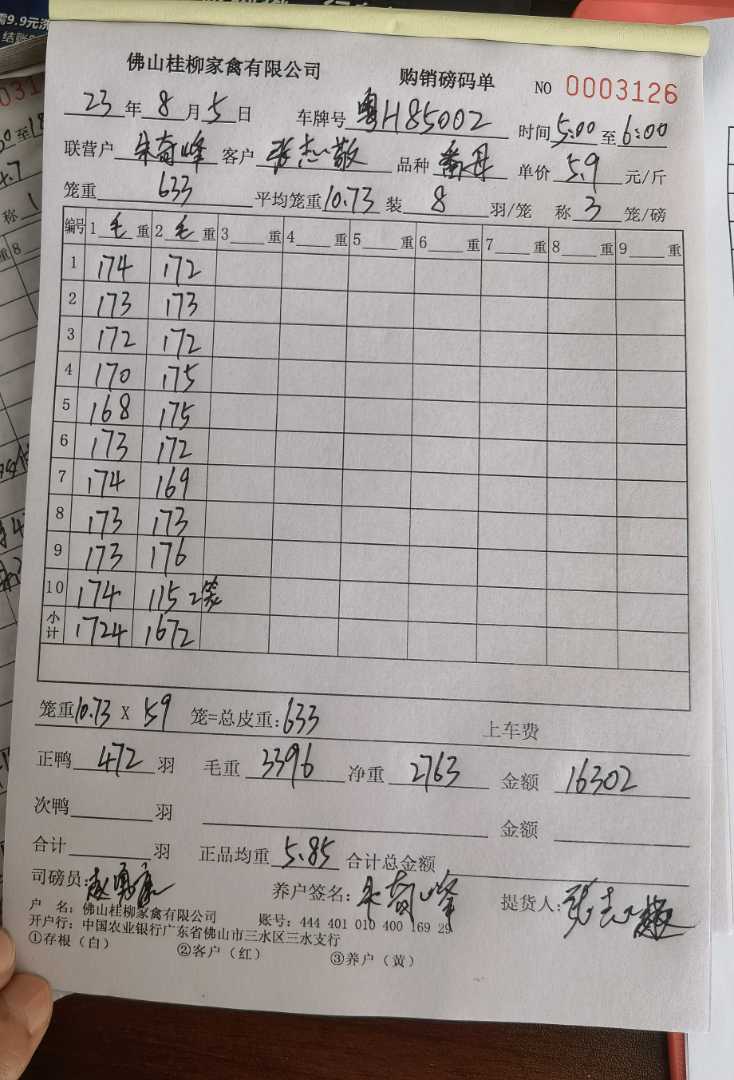 佛山桂柳家禽有限公司 购销磅码单 NO 0003126
23年8月5日 车牌号 粤H85002 时间5:00至6:00
联营户 朱奇峰 客户 张志敬 品种 番母 单价 5.9 元/斤
笼重 633 平均笼重10.73 装 8 羽/笼 称 3 笼/磅
编号 1 毛 重 2 毛 重 3 重 4 重 5 重 6 重 7 重 8 重 9 重
1 174 172
2 173 173
3 172 172
4 170 175
5 168 175
6 173 172
7 174 169
8 173 173
9 173 176
10 174 115 2笼
小计 1724 1672
笼重10.73 X 59 笼=总皮重:633 上车费
正鸭 472 羽 毛重 3396 净重 2763 金额 16302
次鸭 羽 金额
合计 羽 正品均重 5.85 合计总金额
司磅员: 养户签名:朱奇峰 提货人:张志敬
户 名:佛山桂柳家禽有限公司 账号:444 401 010 400 169 29
开户行:中国农业银行广东省佛山市三水区三水支行
①存根(白) ②客户(红) ③养户(黄)